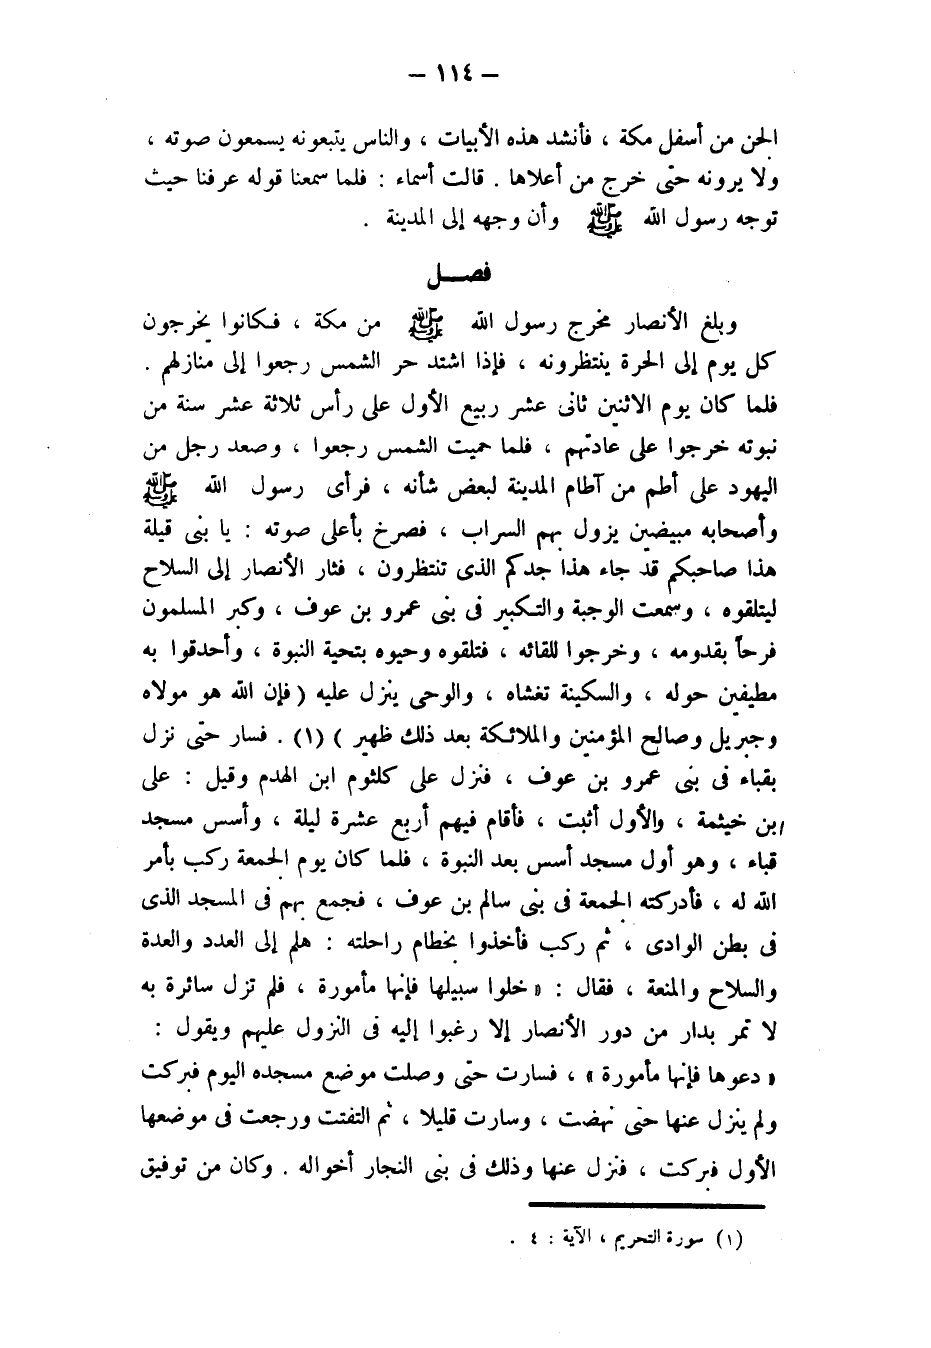 – ١١٤ –
الجن من أسفل مكة ، فأنشد هذه الأبيات ، والناس يتبعونه يسمعون صوته ،
ولا يرونه حتى خرج من أعلاها . قالت أسماء : فلما سمعنا قوله عرفنا حيث
توجه رسول الله ﷺ وأن وجهه إلى المدينة .
فصـــل
وبلغ الأنصار مخرج رسول الله ﷺ من مكة ، فكانوا يخرجون
كل يوم إلى الحرة ينتظرونه ، فإذا اشتد حر الشمس رجعوا إلى منازلهم .
فلما كان يوم الاثنين ثانى عشر ربيع الأول على رأس ثلاثة عشر سنة من
نبوته خرجوا على عادتهم ، فلما حميت الشمس رجعوا ، وصعد رجل من
اليهود على أطم من آطام المدينة لبعض شأنه ، فرأى رسول الله ﷺ
وأصحابه مبيضين يزول بهم السراب ، فصرخ بأعلى صوته : يا بنى قيلة
هذا صاحبكم قد جاء هذا جدكم الذى تنتظرون ، فثار الأنصار إلى السلاح
ليتلقوه ، وسمعت الوجبة والتكبير فى بنى عمرو بن عوف ، وكبر المسلمون
فرحاً بقدومه ، وخرجوا للقائه ، فتلقوه وحيوه بتحية النبوة ، وأحدقوا به
مطيفين حوله ، والسكينة تغشاه ، والوحى ينزل عليه ( فإن الله هو مولاه
وجبريل وصالح المؤمنين والملائكة بعد ذلك ظهير ) (١) . فسار حتى نزل
بقباء فى بنى عمرو بن عوف ، فنزل على كلثوم ابن الهدم وقيل : على
ابن خيثمة ، والأول أثبت ، فأقام فيهم أربع عشرة ليلة ، وأسس مسجد
قباء ، وهو أول مسجد أسس بعد النبوة ، فلما كان يوم الجمعة ركب بأمر
الله له ، فأدركته الجمعة فى بنى سالم بن عوف ، فجمع بهم فى المسجد الذى
فى بطن الوادى ، ثم ركب فأخذوا بخطام راحلته : هلم إلى العدد والعدة
والسلاح والمنعة ، فقال : « خلوا سبيلها فإنها مأمورة ، فلم تزل سائرة به
لا تمر بدار من دور الأنصار إلا رغبوا إليه فى النزول عليهم ويقول :
« دعوها فإنها مأمورة » ، فسارت حتى وصلت موضع مسجده اليوم فبركت
ولم ينزل عنها حتى نهضت ، وسارت قليلا ، ثم التفتت ورجعت فى موضعها
الأول فبركت ، فنزل عنها وذلك فى بنى النجار أخواله . وكان من توفيق
(١) سورة التحريم ، الآية : ٤ .